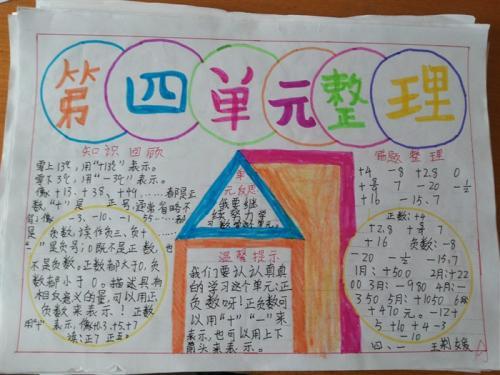 第四单元整理
知识回顾
零上13℃，用“+13℃”表示。
零下3℃，用“-3℃”表示。
像+13、+38、+44……都是正
数“+”是正号，通常省略不
写，像-3、-10、-1、-55……都
是负数。读作负三、负十
“-”是负号；0既不是正数，也
不是负数。正数都大于0，负
数都小于0。描述具有
相反意义的量，可以用正
负数来表示！正数
用“+”表示，像+6.3、+5、+7
读：正7
单
元反思
我要继
续努力学
温馨提示
我们要认认真真
的学习这个单元；正
负数呀！正负数可
以用“+”“-”来
表示，也可以用上下
箭头来表示。
错题整理
+4 -8 +2.8 0
7 -20
+16 -15、7
正数：+4
+2.8 + 7
+16 负数：-8
-20 -15.7
1月：+500 2月：+22
00 3月：-980 4月：-
350 5月：+1050 6月
+470元。-12+
5+10+4-3
-10
四、一